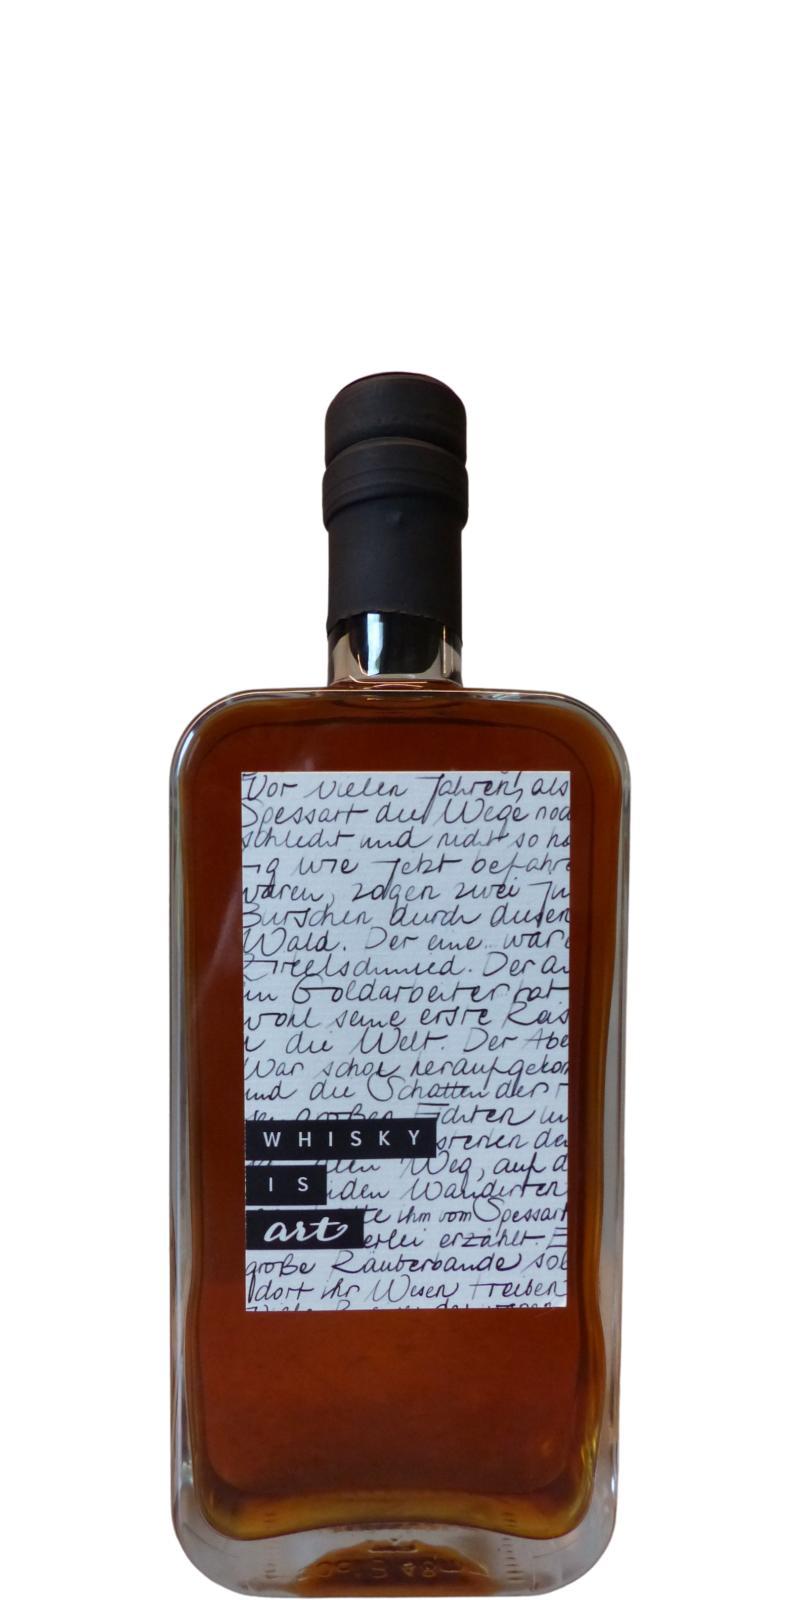 Vor vielen Jahren, als
Spessart die Wege noc
schlecht und nicht so hä
ig wie jetzt befahre
waren, zogen zwei ju
Burschen durch diesen
Wald. Der eine war
Zirkelschmied. Der an
ein Goldarbeiter tat
wohl seine erste Reis
n die Welt. Der Abe
War schon heraufgekom
und die Schatten der r
großen Fichten
WHISKY
Weg, auf d
IS
iden Wanderten
art
ihm vom Spessart
erlei erzählt. E
große Räuberbande sol
dort ihr Wesen treiben